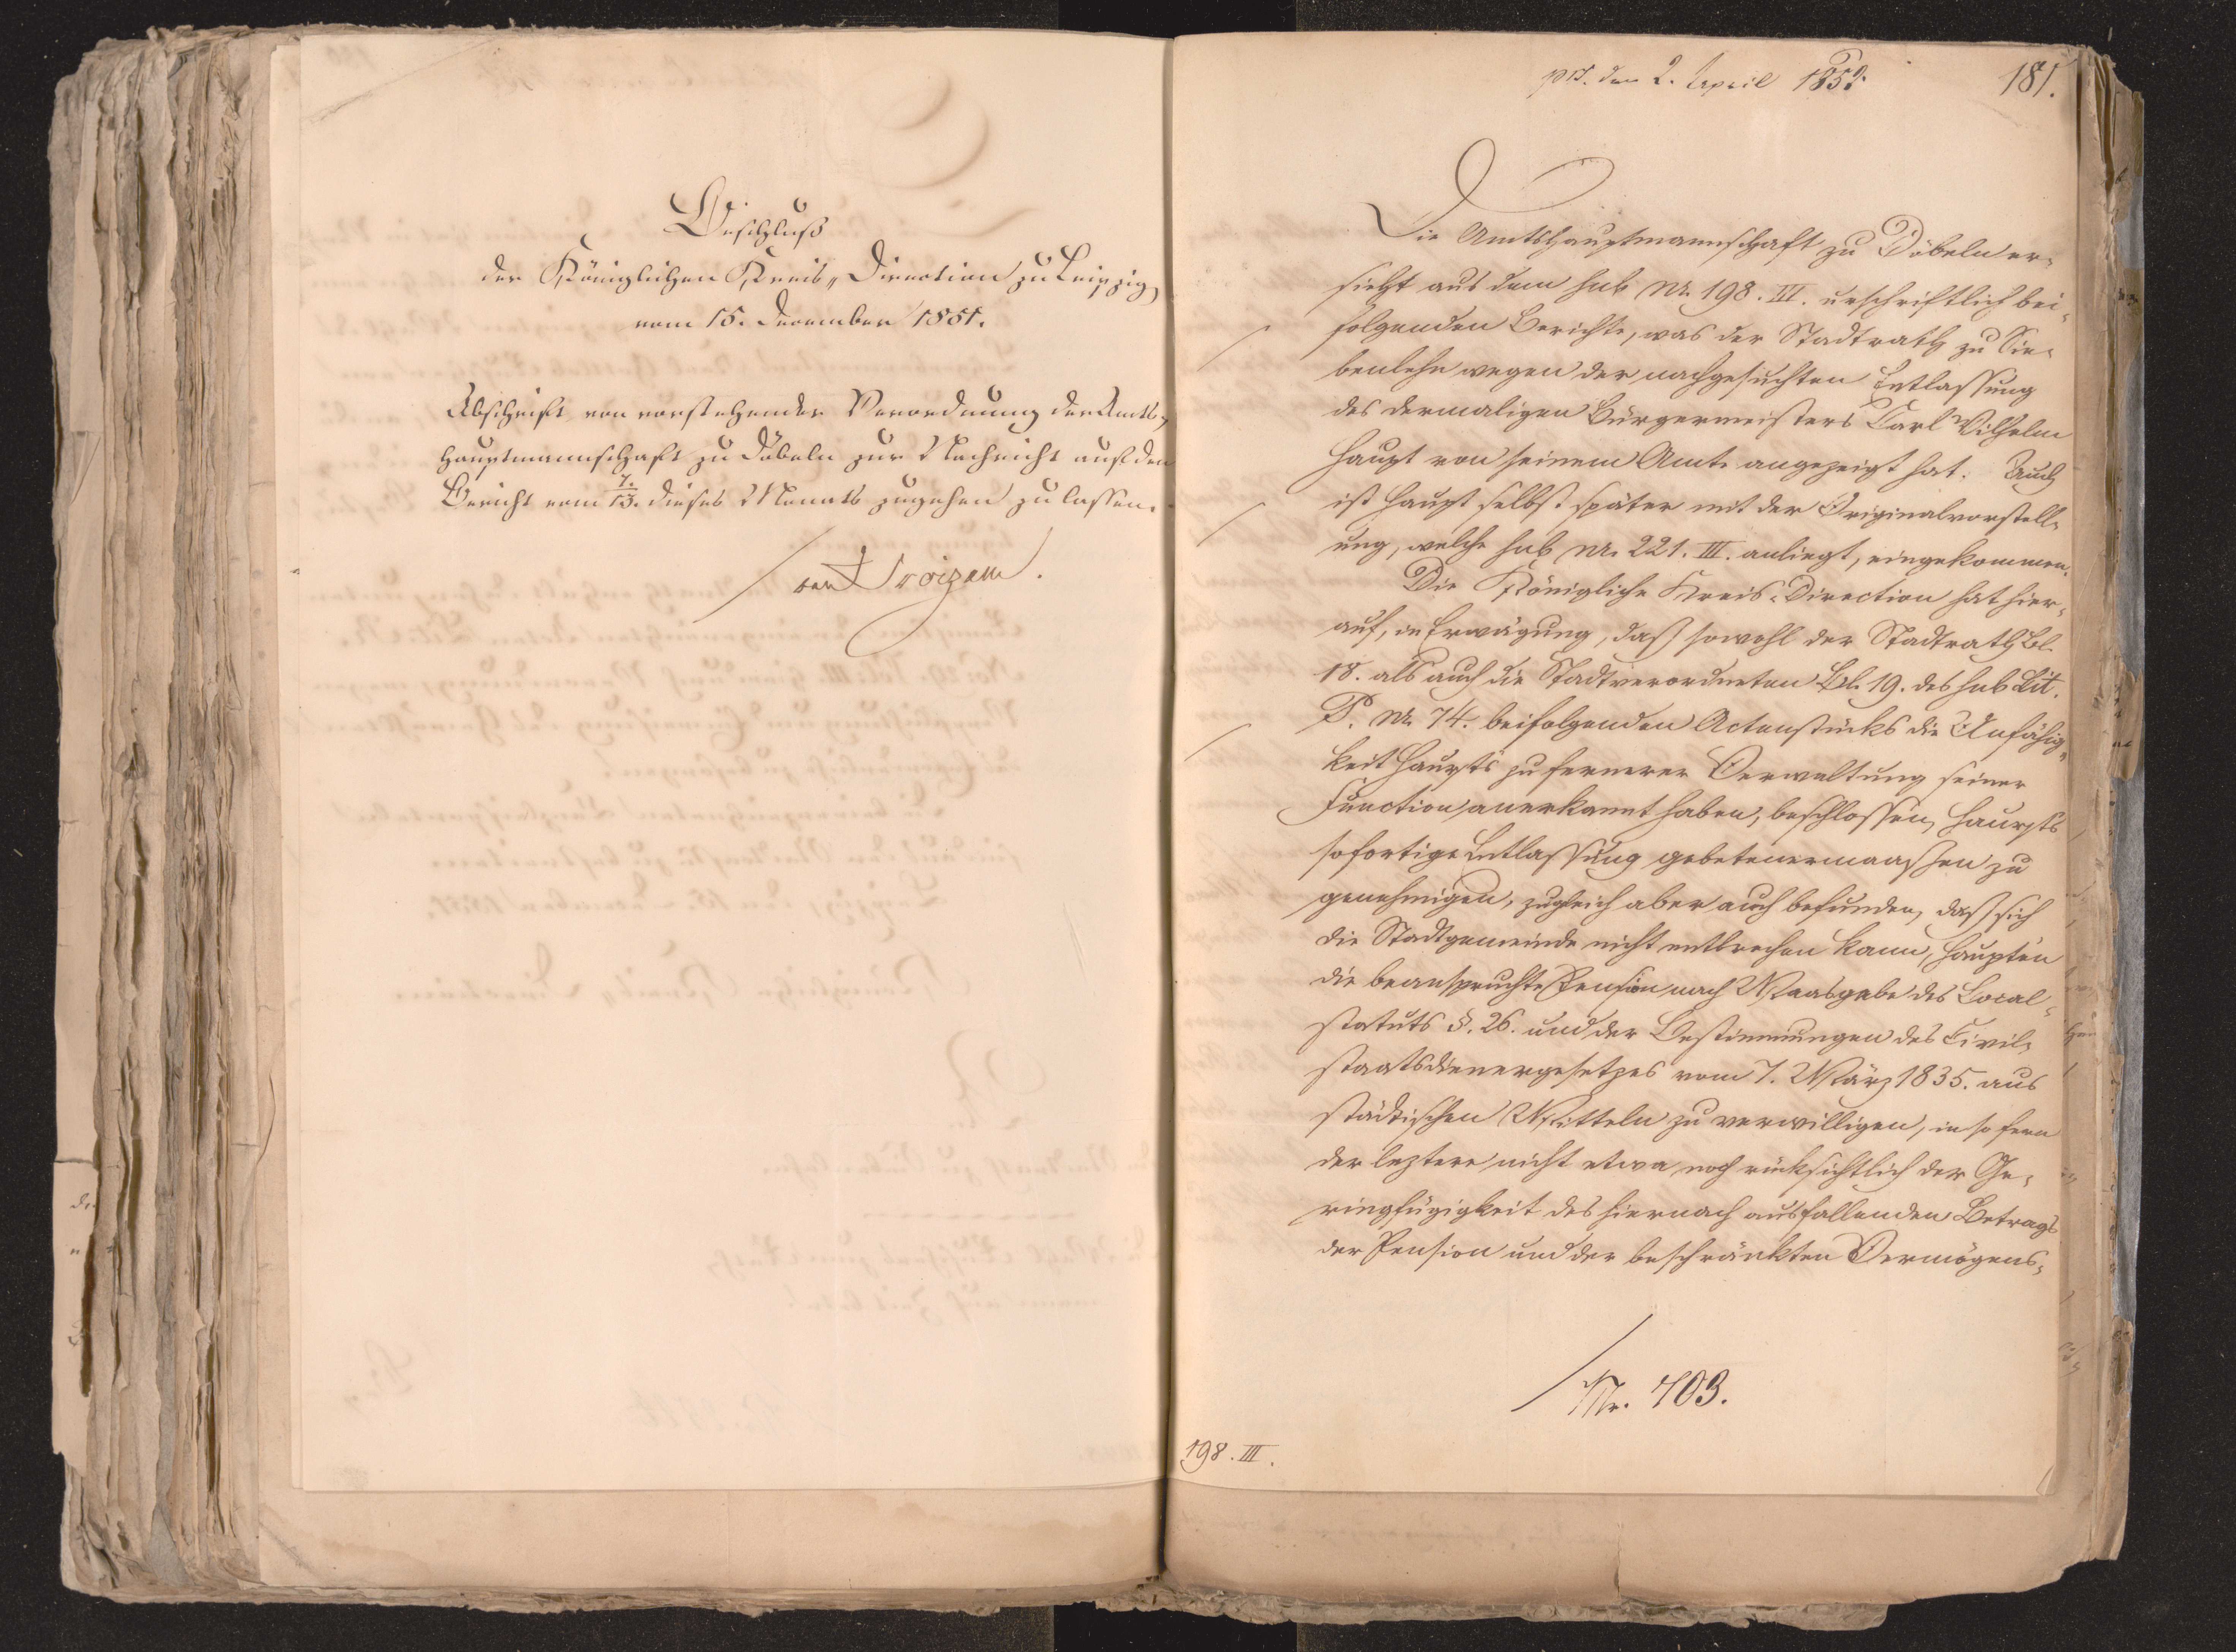 Beschluß
der Königlichen Kreis-Direction zu Leipzig,
vom 15. December 1851.
Abschrift von vorstehender Verordnung der Amts-
hauptmannschaft zu Döbeln zur Nachricht auf den
Bericht vom 7./13. dieses Monats zugehen zu lassen.
von Broizem.
prs. den 2. April 1852.
181.
Die Amtshauptmannschaft zu Döbeln er-
sieht aus dem sub Nr. 198. III. urschriftlich bei-
folgenden Berichte, was der Stadtrath zu Sie-
benlehn wegen der nachgesuchten Entlassung
des dermaligen Bürgermeisters Carl Wilhelm
Haupt von seinem Amte angezeigt hat. Auch
ist Haupt selbst später mit der Originalvorstell-
ung, welche sub Nr. 221. III. anliegt, eingekommen.
Die Königliche Kreis-Direction hat hier-
auf, in Erwägung, daß sowohl der Stadtrath Bl.
18. als auch die Stadtverordneten Bl. 19. des sub Lit.
P. Nr. 74. beifolgenden Actenstücks die Unfähig-
keit Haupts zu fernerer Verwaltung seiner
Function anerkannt haben, beschlossen, Haupts
sofortige Entlassung gebetenermaaßen zu
genehmigen, zugleich aber auch befunden, daß sich
die Stadtgemeinde nicht entbrechen kann, Haupten
die beanspruchte Pension nach Maasgabe des Local-
statuts §. 26. und der Bestimmungen des Civil-
staatsdienergesetzes vom 7. März 1835. aus
städtischen Mitteln zu verwilligen, in so fern
der leztere nicht etwa noch rücksichtlich der Ge-
ringfügigkeit des hiernach ausfallenden Betrags
der Pension und der beschränkten Vermögens-
Nr. 703.
198. III.